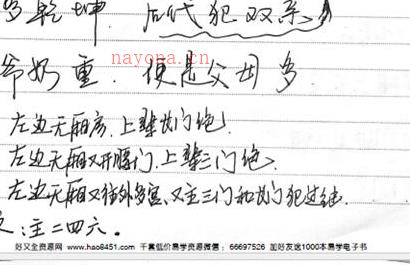 多乾坤. 后代犯双系
nayona.cn
爷奶重. 便是父母多
左边无厢房,上辈长门绝.
左边无厢又开腰门,上辈三门绝.
左边无厢又往外多宫,又主三门和长门犯过继.
:主二四六.
好又全资源网 www.hao8451.com 千套低价易学资源微信:66697526 加好友送1000本易学电子书